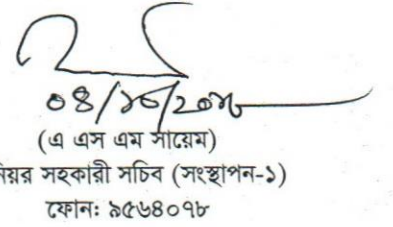 (এ এস এম সায়েম)
নিয়র সহকারী সচিব (সংস্থাপন-১)
ফোনঃ ৯৫৬৪০৭৮